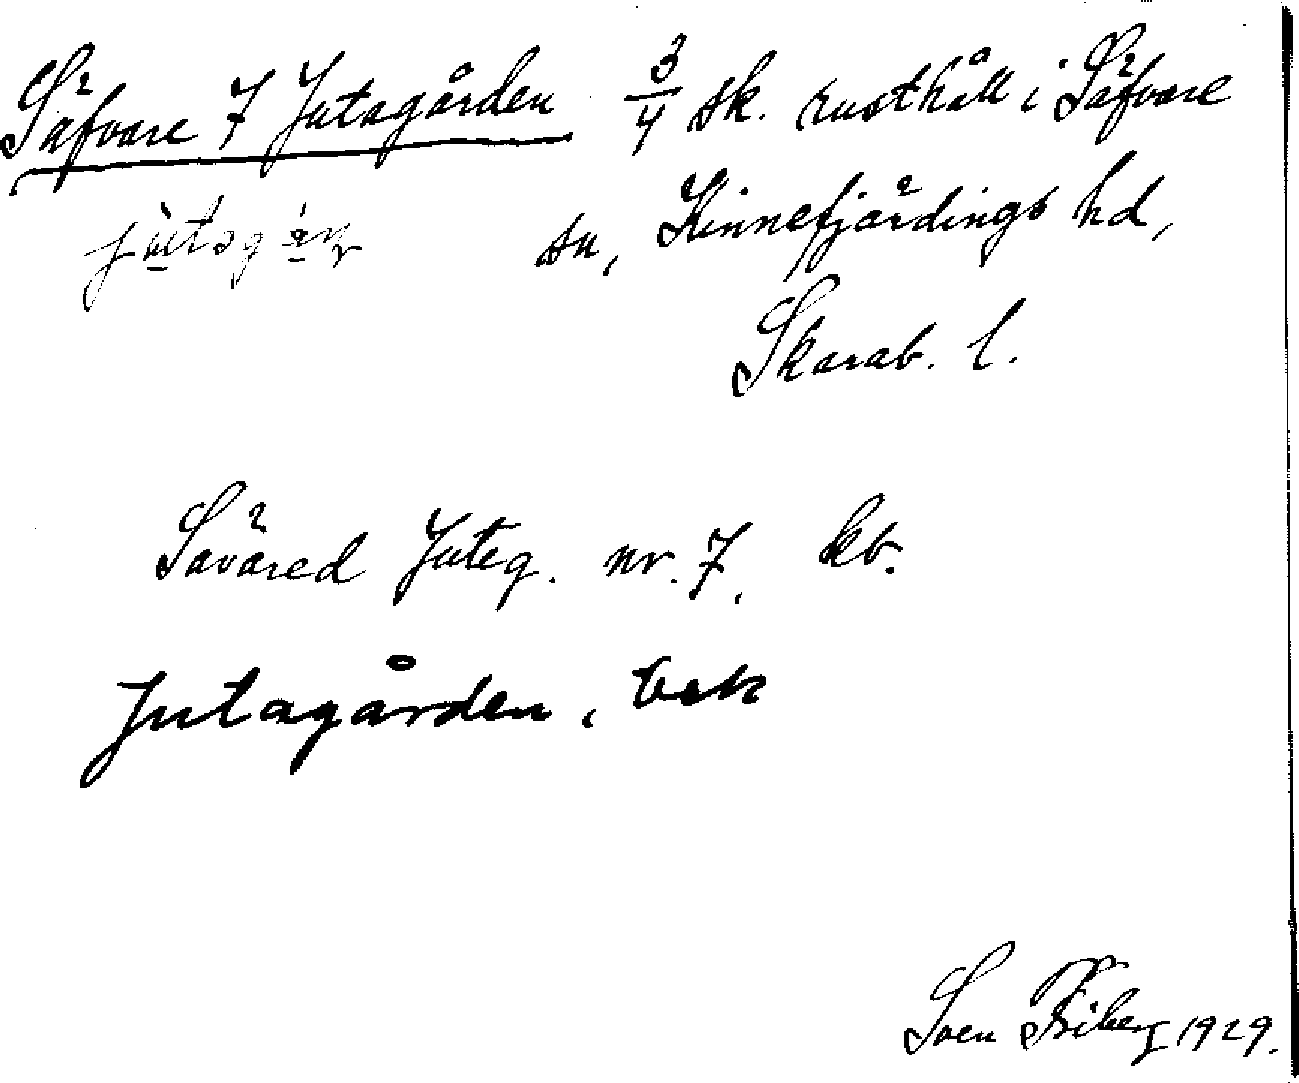 Säfvare 7 Jutagården 3/4 sk. rusthåll i Säfvare
sn, Kinnefjärdings hd,
Skarab. l.
Säväred Juteg. nr. 7, kb.
Jutagården, bek
Sven Friberg 1929.